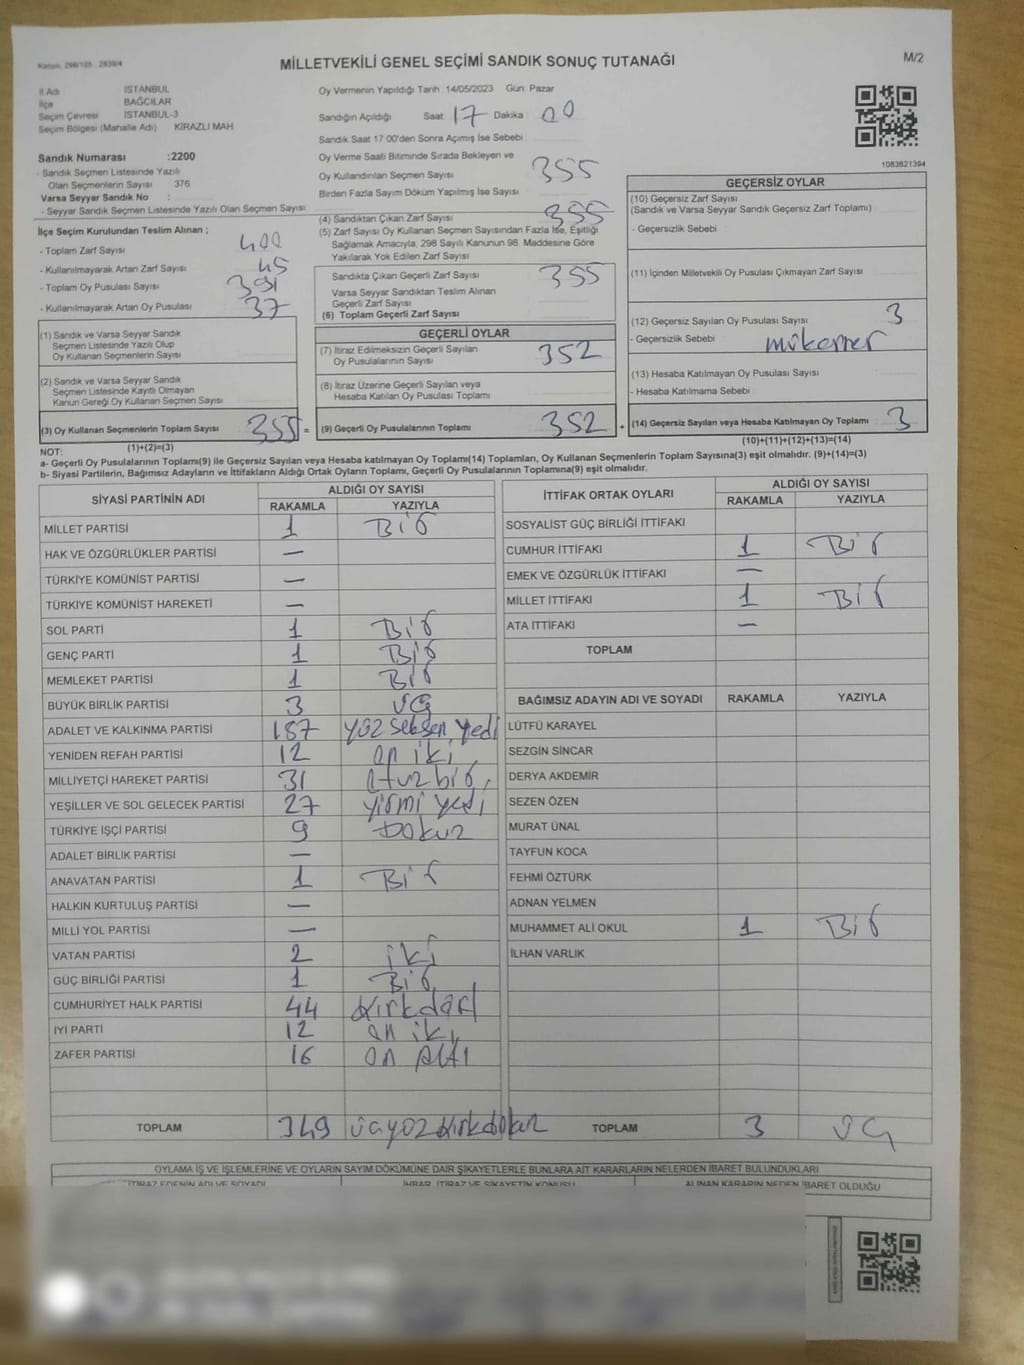 Kanun: 298/105 , 2839/4
MİLLETVEKİLİ GENEL SEÇİMİ SANDIK SONUÇ TUTANAĞI
M/2
İl Adı İSTANBUL
İlçe BAĞCILAR
Seçim Çevresi İSTANBUL-3
Seçim Bölgesi (Mahalle Adı) KİRAZLI MAH.
Sandık Numarası :2200
- Sandık Seçmen Listesinde Yazılı
Olan Seçmenlerin Sayısı 376
Varsa Seyyar Sandık No :
- Seyyar Sandık Seçmen Listesinde Yazılı Olan Seçmen Sayısı
İlçe Seçim Kurulundan Teslim Alınan ;
- Toplam Zarf Sayısı 400
- Kullanılmayarak Artan Zarf Sayısı 45
- Toplam Oy Pusulası Sayısı 391
- Kullanılmayarak Artan Oy Pusulası 37
(1) Sandık ve Varsa Seyyar Sandık
Seçmen Listesinde Yazılı Olup
Oy Kullanan Seçmenlerin Sayısı
(2) Sandık ve Varsa Seyyar Sandık
Seçmen Listesinde Kayıtlı Olmayan
Kanun Gereği Oy Kullanan Seçmen Sayısı
(3) Oy Kullanan Seçmenlerin Toplam Sayısı 355 =
(1)+(2)=(3)
Oy Vermenin Yapıldığı Tarih 14/05/2023 Gün Pazar
Sandığın Açıldığı Saat 17 Dakika 00
Sandık Saat 17:00'den Sonra Açımış İse Sebebi
Oy Verme Saati Bitiminde Sırada Bekleyen ve
Oy Kullandırılan Seçmen Sayısı 355
Birden Fazla Sayım Döküm Yapılmış İse Sayısı
(4) Sandıktan Çıkan Zarf Sayısı 355
(5) Zarf Sayısı Oy Kullanan Seçmen Sayısından Fazla İse, Eşitliği
Sağlamak Amacıyla, 298 Sayılı Kanunun 98. Maddesine Göre
Yakılarak Yok Edilen Zarf Sayısı
Sandıkta Çıkan Geçerli Zarf Sayısı 355
Varsa Seyyar Sandıktan Teslim Alınan
Geçerli Zarf Sayısı
(6) Toplam Geçerli Zarf Sayısı
GEÇERLİ OYLAR
(7) İtiraz Edilmeksizin Geçerli Sayılan
Oy Pusulalarının Sayısı 352
(8) İtiraz Üzerine Geçerli Sayılan veya
Hesaba Katılan Oy Pusulası Toplamı
(9) Geçerli Oy Pusulalarının Toplamı 352 +
1083621394
GEÇERSİZ OYLAR
(10) Geçersiz Zarf Sayısı
(Sandık ve Varsa Seyyar Sandık Geçersiz Zarf Toplamı)
- Geçersizlik Sebebi
(11) İçinden Milletvekili Oy Pusulası Çıkmayan Zarf Sayısı
(12) Geçersiz Sayılan Oy Pusulası Sayısı 3
- Geçersizlik Sebebi mükerrer
(13) Hesaba Katılmayan Oy Pusulası Sayısı
- Hesaba Katılmama Sebebi
(14) Geçersiz Sayılan veya Hesaba Katılmayan Oy Toplamı 3
(10)+(11)+(12)+(13)=(14)
NOT:
a- Geçerli Oy Pusulalarının Toplamı(9) ile Geçersiz Sayılan veya Hesaba katılmayan Oy Toplamı(14) Toplamları, Oy Kullanan Seçmenlerin Toplam Sayısına(3) eşit olmalıdır. (9)+(14)=(3)
b- Siyasi Partilerin, Bağımsız Adayların ve İttifakların Aldığı Ortak Oyların Toplamı, Geçerli Oy Pusulalarının Toplamına(9) eşit olmalıdır.
SİYASİ PARTİNİN ADI ALDIĞI OY SAYISI
RAKAMLA YAZIYLA
MİLLET PARTİSİ 1 Bir
HAK VE ÖZGÜRLÜKLER PARTİSİ —
TÜRKİYE KOMÜNİST PARTİSİ —
TÜRKİYE KOMÜNİST HAREKETİ —
SOL PARTİ 1 Bir
GENÇ PARTİ 1 Bir
MEMLEKET PARTİSİ 1 Bir
BÜYÜK BİRLİK PARTİSİ 3 üç
ADALET VE KALKINMA PARTİSİ 187 yüz seksen yedi
YENİDEN REFAH PARTİSİ 12 on iki
MİLLİYETÇİ HAREKET PARTİSİ 31 otuz bir
YEŞİLLER VE SOL GELECEK PARTİSİ 27 yirmi yedi
TÜRKİYE İŞÇİ PARTİSİ 9 Dokuz
ADALET BİRLİK PARTİSİ —
ANAVATAN PARTİSİ 1 Bir
HALKIN KURTULUŞ PARTİSİ —
MİLLİ YOL PARTİSİ —
VATAN PARTİSİ 2 iki
GÜÇ BİRLİĞİ PARTİSİ 1 Bir
CUMHURİYET HALK PARTİSİ 44 kırkdört
İYİ PARTİ 12 on iki
ZAFER PARTİSİ 16 on Altı
TOPLAM 349 üçyüz kırkdokuz
İTTİFAK ORTAK OYLARI ALDIĞI OY SAYISI
RAKAMLA YAZIYLA
SOSYALİST GÜÇ BİRLİĞİ İTTİFAKI
CUMHUR İTTİFAKI 1 Bir
EMEK VE ÖZGÜRLÜK İTTİFAKI —
MİLLET İTTİFAKI 1 Bir
ATA İTTİFAKI —
TOPLAM
BAĞIMSIZ ADAYIN ADI VE SOYADI RAKAMLA YAZIYLA
LÜTFÜ KARAYEL
SEZGİN SİNCAR
DERYA AKDEMİR
SEZEN ÖZEN
MURAT ÜNAL
TAYFUN KOCA
FEHMİ ÖZTÜRK
ADNAN YELMEN
MUHAMMET ALİ OKUL 1 Bir
İLHAN VARLIK
TOPLAM 3 üç
OYLAMA İŞ VE İŞLEMLERİNE VE OYLARIN SAYIM DÖKÜMÜNE DAİR ŞİKAYETLERLE BUNLARA AİT KARARLARIN NELERDEN İBARET BULUNDUKLARI
İTİRAZ EDENİN ADI VE SOYADI İHBAR, İTİRAZ VE ŞİKAYETİN KONUSU ALINAN KARARIN NEDEN İBARET OLDUĞU